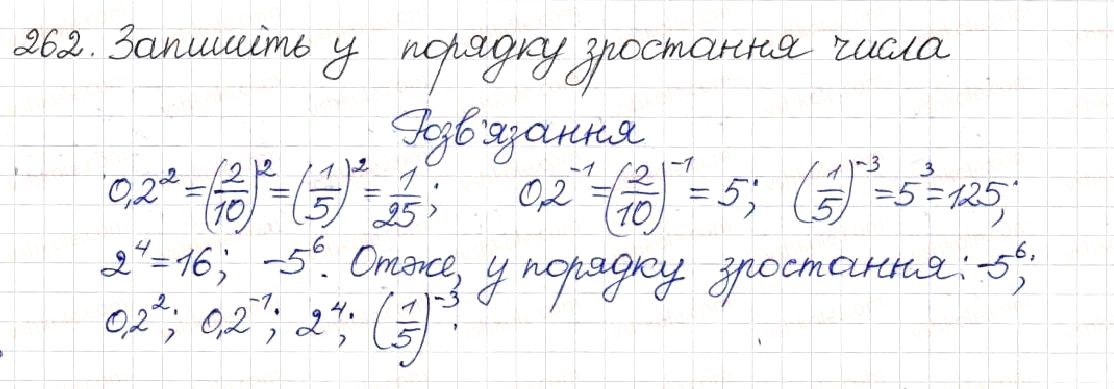 262. Запишіть у порядку зростання числа
Розв'язання
0,2² = (2/10)² = (1/5)² = 1/25; 0,2⁻¹ = (2/10)⁻¹ = 5; (1/5)⁻³ = 5³ = 125;
2⁴ = 16; -5⁶. Отже, у порядку зростання: -5⁶;
0,2²; 0,2⁻¹; 2⁴; (1/5)⁻³.